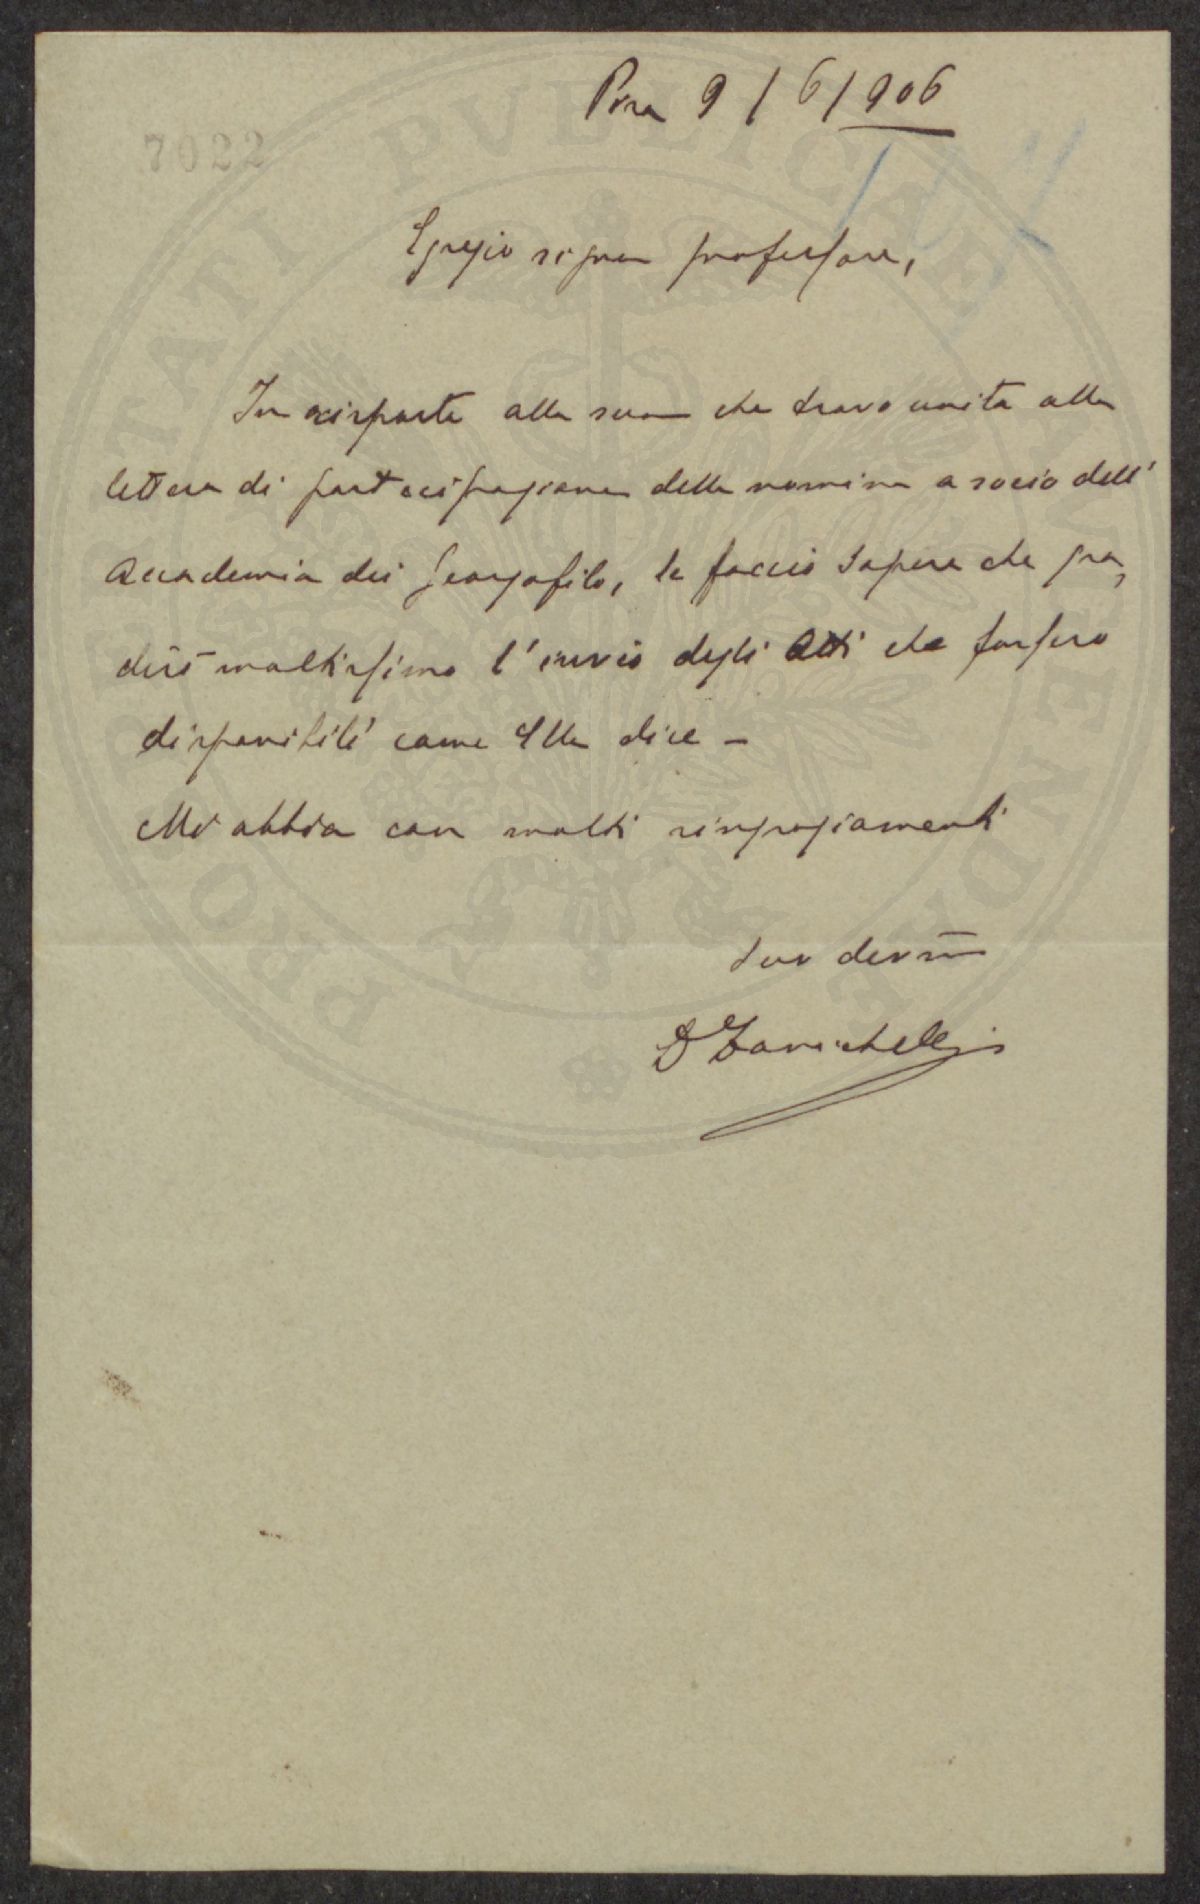 Pisa 9/6/906
7022
Egregio signor professore,
In risposta alla sua che trovo unita alla
lettera di partecipazione della nomina a socio dell'
Accademia dei Georgofili, le faccio sapere che gra,
dirò moltissimo l'invio degli Atti che fossero
disponibili come Ella dice -
Mi abbia con molti ringraziamenti
suo dev.mo
D Zanichelli
PROSPERITATI PVBLICAE AVGENDAE